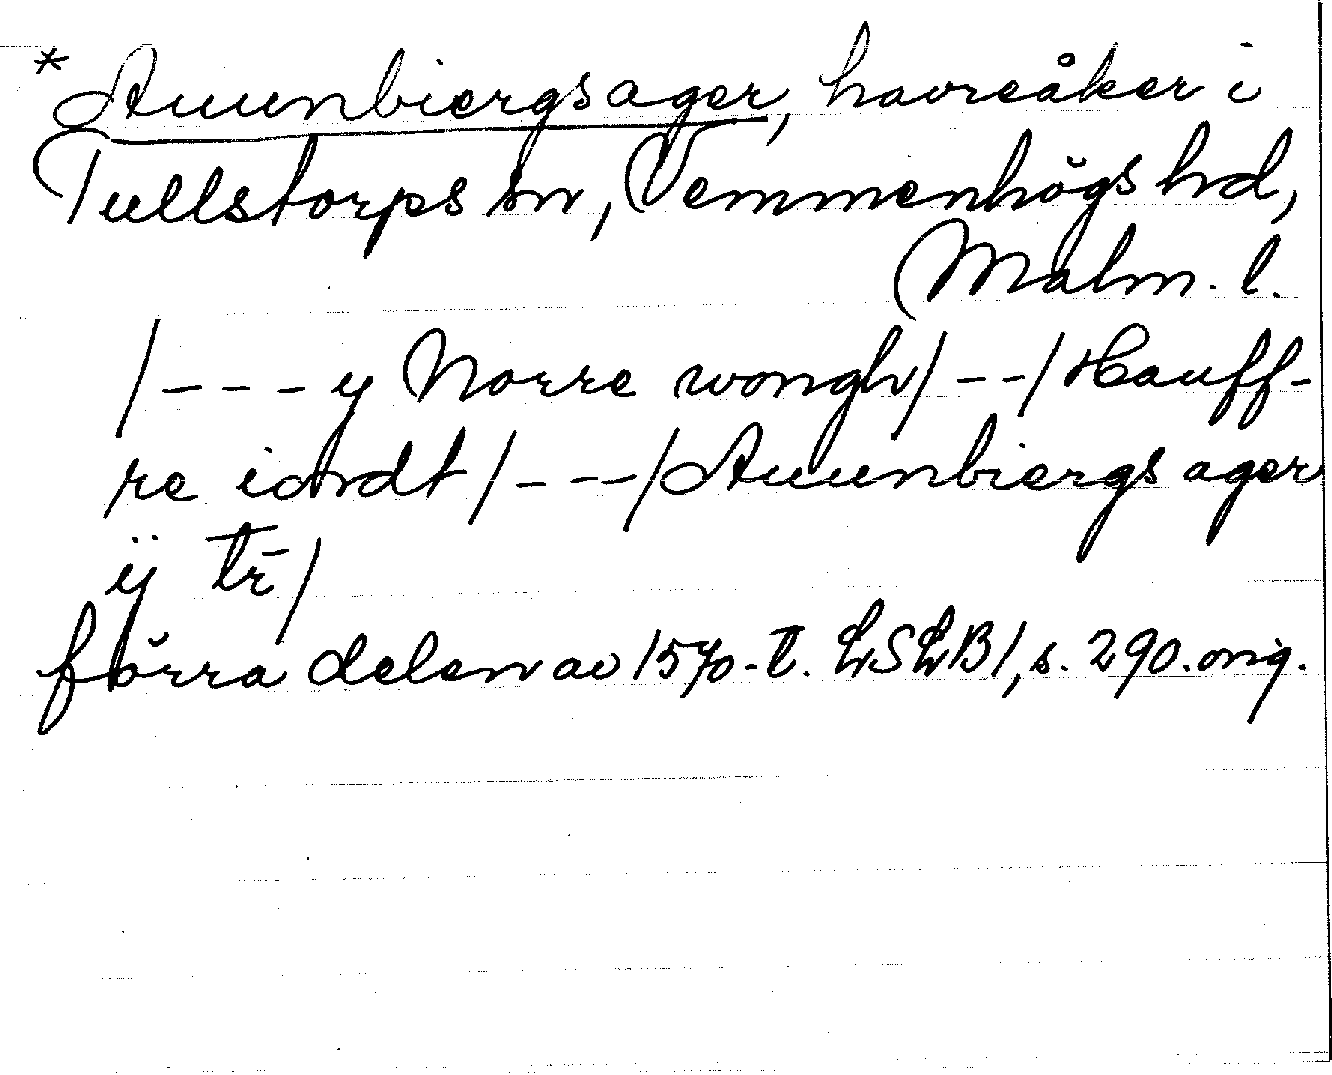 * Auunbiergsager, havreåker i
Tullstorps sn, Vemmenhögs hd,
Malm. l.
/ - - - y Norre wongh / - - / Hauff-
re iordt / - - - / Auunbiergs ager
ÿ tr̄ /
förra delen av 1570-t. LSLB1, s. 290. orig.